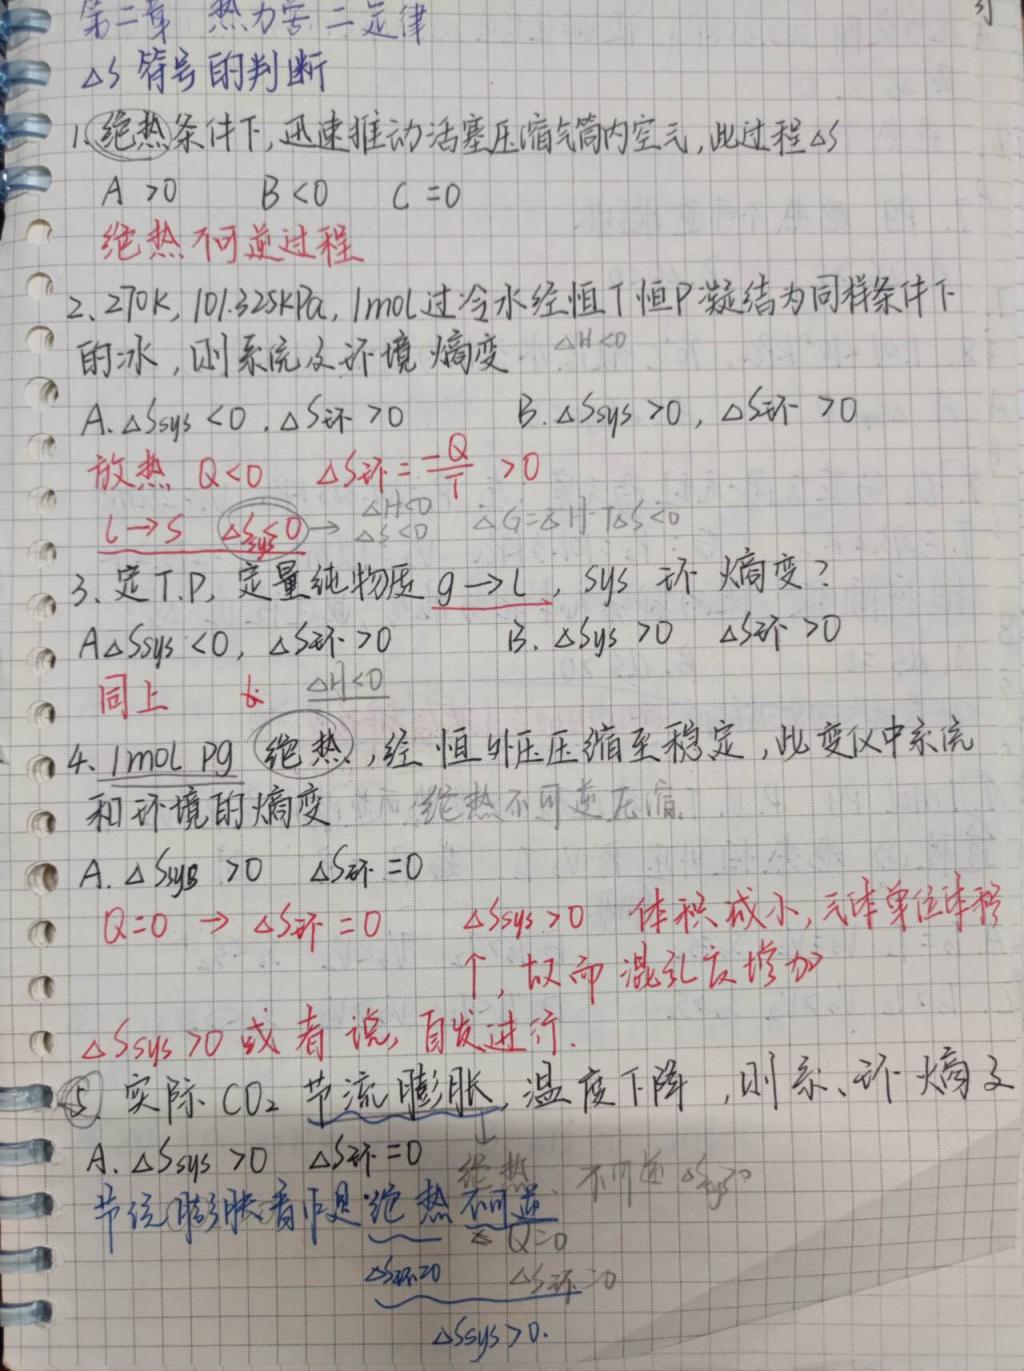 第二章 热力学二定律
ΔS 符号的判断
1. 绝热条件下,迅速推动活塞压缩气筒内空气,此过程ΔS
A >0 B <0 C =0
绝热不可逆过程
2、270K, 101.325KPa, 1mol过冷水经恒T恒P凝结为同样条件下
的冰,则系统及环境熵变 ΔH<0
A. ΔSsys <0 , ΔS环 >0 B. ΔSsys >0 , ΔS环 >0
放热 Q<0 ΔS环 = -Q/T >0
L→S ΔSsys<0 → ΔH<0 ΔS<0 ΔG=ΔH-TΔS<0
3、定T.P, 定量纯物质 g→L , sys 环 熵变?
A ΔSsys <0, ΔS环 >0 B. ΔSsys >0 ΔS环 >0
同上 ΔH<0
4. 1mol pg 绝热,经恒外压压缩至稳定,此变化中系统
和环境的熵变 绝热不可逆压缩
A. ΔSsys >0 ΔS环 =0
Q=0 → ΔS环 =0 ΔSsys >0 体积减小,气体单位体积
↑, 故而混乱度增加
ΔSsys >0 或者说,自发进行.
5. 实际CO₂ 节流膨胀,温度下降,则系、环熵变
A. ΔSsys >0 ΔS环 =0 ↓ 绝热、不可逆 ΔSsys>0
节流膨胀看作是绝热不可逆
Q=0
ΔS环=0 ΔS环=0
ΔSsys >0.